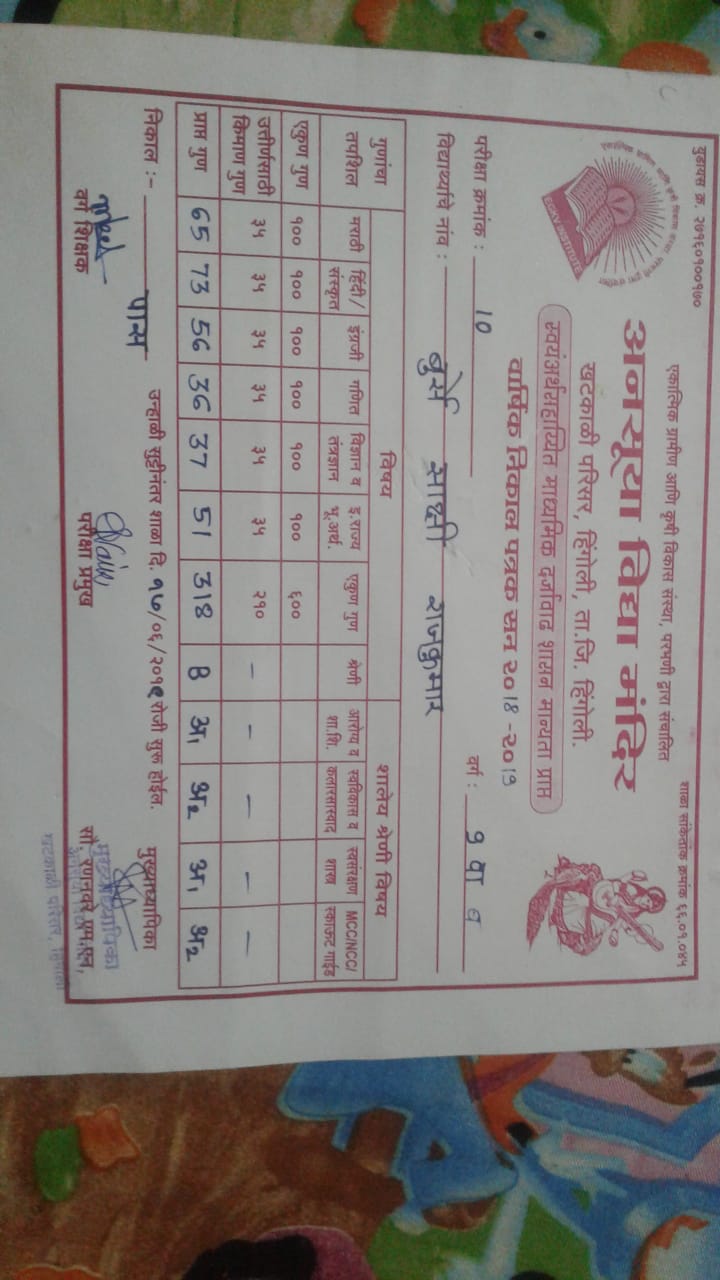 युडायस क्र. २७१६०१००१७०
शाळा सांकेतांक क्रमांक ६६.०१.०४५
एकात्मिक ग्रामीण आणि कृषी विकास संस्था, परभणी द्वारा संचालित
अनसूया विद्या मंदिर
खटकाळी परिसर, हिंगोली, ता.जि. हिंगोली.
स्वयंअर्थसहाय्यित माध्यमिक दर्जावाढ शासन मान्यता प्राप्त
वार्षिक निकाल पत्रक सन २०18 -२०19
EGKV INSTITUTE
परीक्षा क्रमांक : 10 वर्ग : ९ वा ब
विद्यार्थ्याचे नांव : बुर्से साक्षी राजकुमार
गुणांचा तपशिल विषय शालेय श्रेणी विषय
मराठी हिंदी/संस्कृत इंग्रजी गणित विज्ञान व तंत्रज्ञान इ.राज्य भू.अर्थ. एकुण गुण श्रेणी आरोग्य व शा.शि. स्वविकास व कलारसास्वाद स्वसंरक्षण शास्त्र MCC/NCC/स्काऊट गाईड
एकुण गुण १०० १०० १०० १०० १०० १०० ६००
उत्तीर्णसाठी किमाण गुण ३५ ३५ ३५ ३५ ३५ ३५ २१० – – – – –
प्राप्त गुण 65 73 56 36 37 51 318 B अ1 अ2 अ1 अ2
निकाल :- पास उन्हाळी सुट्टीनंतर शाळा दि. १७/०६/२०१९ रोजी सुरु होईल.
वर्ग शिक्षक परीक्षा प्रमुख मुख्याध्यापिका
मुख्याध्यापिका
खटकाळी परिसर, हिंगोली